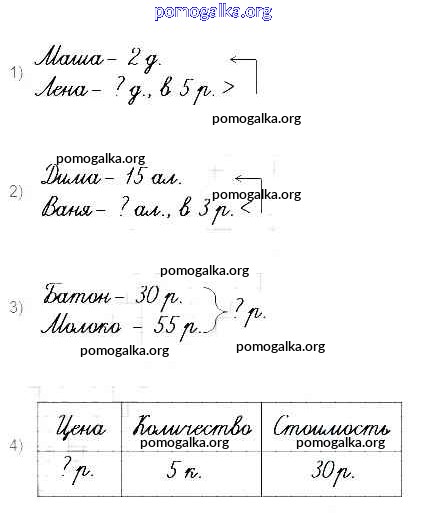 pomogalka.org
1) Маша – 2 д.
Лена – ? д., в 5 р. >
pomogalka.org
pomogalka.org
2) Дима – 15 ал.
pomogalka.org
Ваня – ? ал., в 3 р. <
pomogalka.org
3) Батон – 30 р.
? р.
Молоко – 55 р.
pomogalka.org
pomogalka.org
4) Цена Количество Стоимость
pomogalka.org pomogalka.org
? р. 5 к. 30 р.